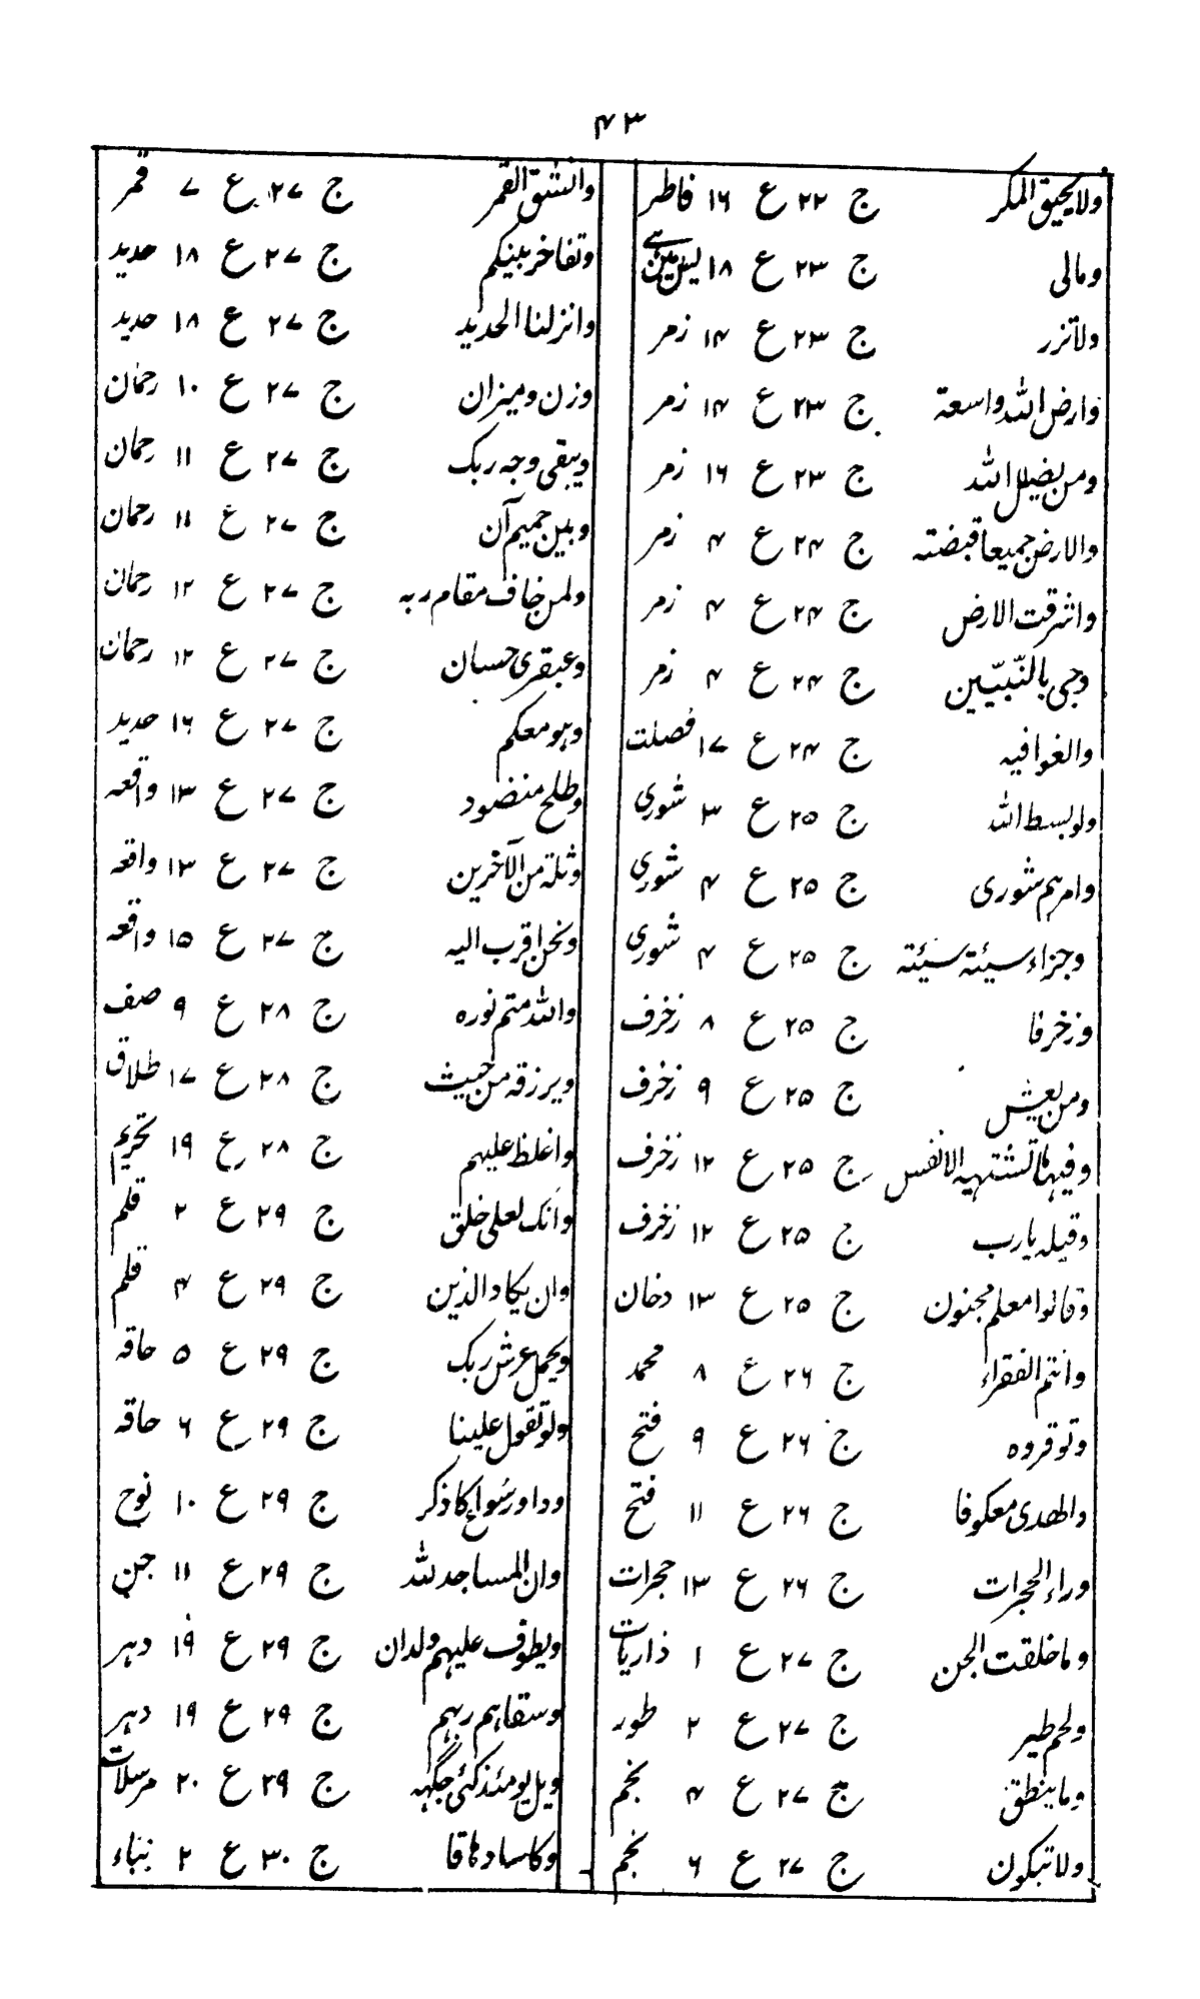 ۴۳
ولا یحیق المکر ج ۲۲ ع ۱۶ فاطر
ومالی ج ۲۳ ع ۱۸ یس میں ہے
ولا تزر ج ۲۳ ع ۱۴ زمر
وارض اللہ واسعۃ ج ۲۳ ع ۱۴ زمر
ومن یضلل اللہ ج ۲۳ ع ۱۶ زمر
والارض جمیعا قبضتہ ج ۲۴ ع ۴ زمر
واشرقت الارض ج ۲۴ ع ۴ زمر
وجی بالنّبیّین ج ۲۴ ع ۴ زمر
والغوا فیہ ج ۲۴ ع ۱۷ فصلت
ولو بسط اللہ ج ۲۵ ع ۳ شوری
وامرہم شوری ج ۲۵ ع ۴ شوری
وجزاء سیئۃ سیئۃ ج ۲۵ ع ۴ شوری
وزخرفا ج ۲۵ ع ۸ زخرف
ومن یعش ج ۲۵ ع ۹ زخرف
وفیہا ما تشتہیہ الانفس ج ۲۵ ع ۱۲ زخرف
وقیلہ یارب ج ۲۵ ع ۱۲ زخرف
وقالوا معلم مجنون ج ۲۵ ع ۱۳ دخان
وانتم الفقراء ج ۲۶ ع ۸ محمد
وتوقروہ ج ۲۶ ع ۹ فتح
والھدی معکوفا ج ۲۶ ع ۱۱ فتح
وراء الحجرات ج ۲۶ ع ۱۳ حجرات
وما خلقت الجن ج ۲۷ ع ۱ ذاریات
ولحم طیر ج ۲۷ ع ۲ طور
وما ینطق ج ۲۷ ع ۴ نجم
ولا تبکون ج ۲۷ ع ۶ نجم
وانشق القمر ج ۲۷ ع ۷ قمر
وتفاخر بینکم ج ۲۷ ع ۱۸ حدید
وانزلنا الحدید ج ۲۷ ع ۱۸ حدید
وزن ومیزان ج ۲۷ ع ۱۰ رحمان
ویبقی وجہ ربک ج ۲۷ ع ۱۱ رحمان
وبین حمیم آن ج ۲۷ ع ۱۱ رحمان
ولمن خاف مقام ربہ ج ۲۷ ع ۱۲ رحمان
وعبقری حسان ج ۲۷ ع ۱۲ رحمان
وہو معکم ج ۲۷ ع ۱۶ حدید
وطلح منضود ج ۲۷ ع ۱۳ واقعہ
وثلۃ من الآخرین ج ۲۷ ع ۱۳ واقعہ
ونحن اقرب الیہ ج ۲۷ ع ۱۵ واقعہ
واللہ متم نورہ ج ۲۸ ع ۹ صف
ویرزقہ من حیث ج ۲۸ ع ۱۷ طلاق
واغلظ علیہم ج ۲۸ ع ۱۹ تحریم
وانک لعلی خلق ج ۲۹ ع ۲ قلم
وان یکاد الذین ج ۲۹ ع ۴ قلم
ویحمل عرش ربک ج ۲۹ ع ۵ حاقہ
ولو تقول علینا ج ۲۹ ع ۶ حاقہ
ودا ور سُواع کا ذکر ج ۲۹ ع ۱۰ نوح
وان المساجد للہ ج ۲۹ ع ۱۱ جن
ویطوف علیہم ولدان ج ۲۹ ع ۱۹ دہر
وسقاہم ربہم ج ۲۹ ع ۱۹ دہر
ویل یومئذ کئی جگہہ ج ۲۹ ع ۲۰ مرسلات
وکاسا دھاقا ج ۳۰ ع ۲ نباء